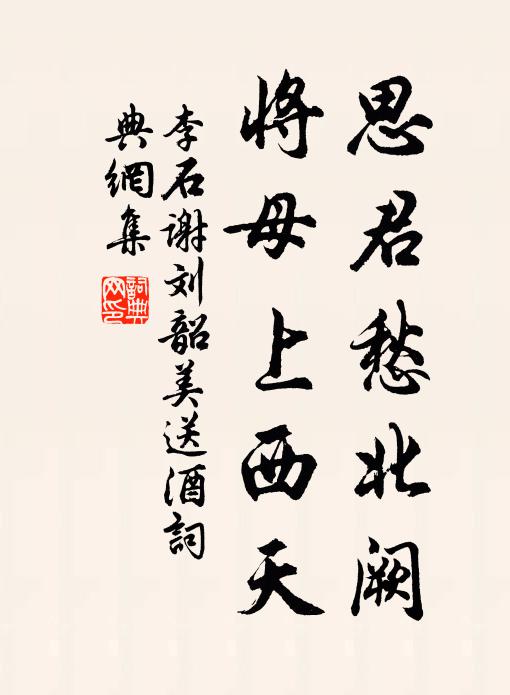 思君愁北阙
将母上西天
李石谢刘韶美送酒詞
典網集
詞典
网印